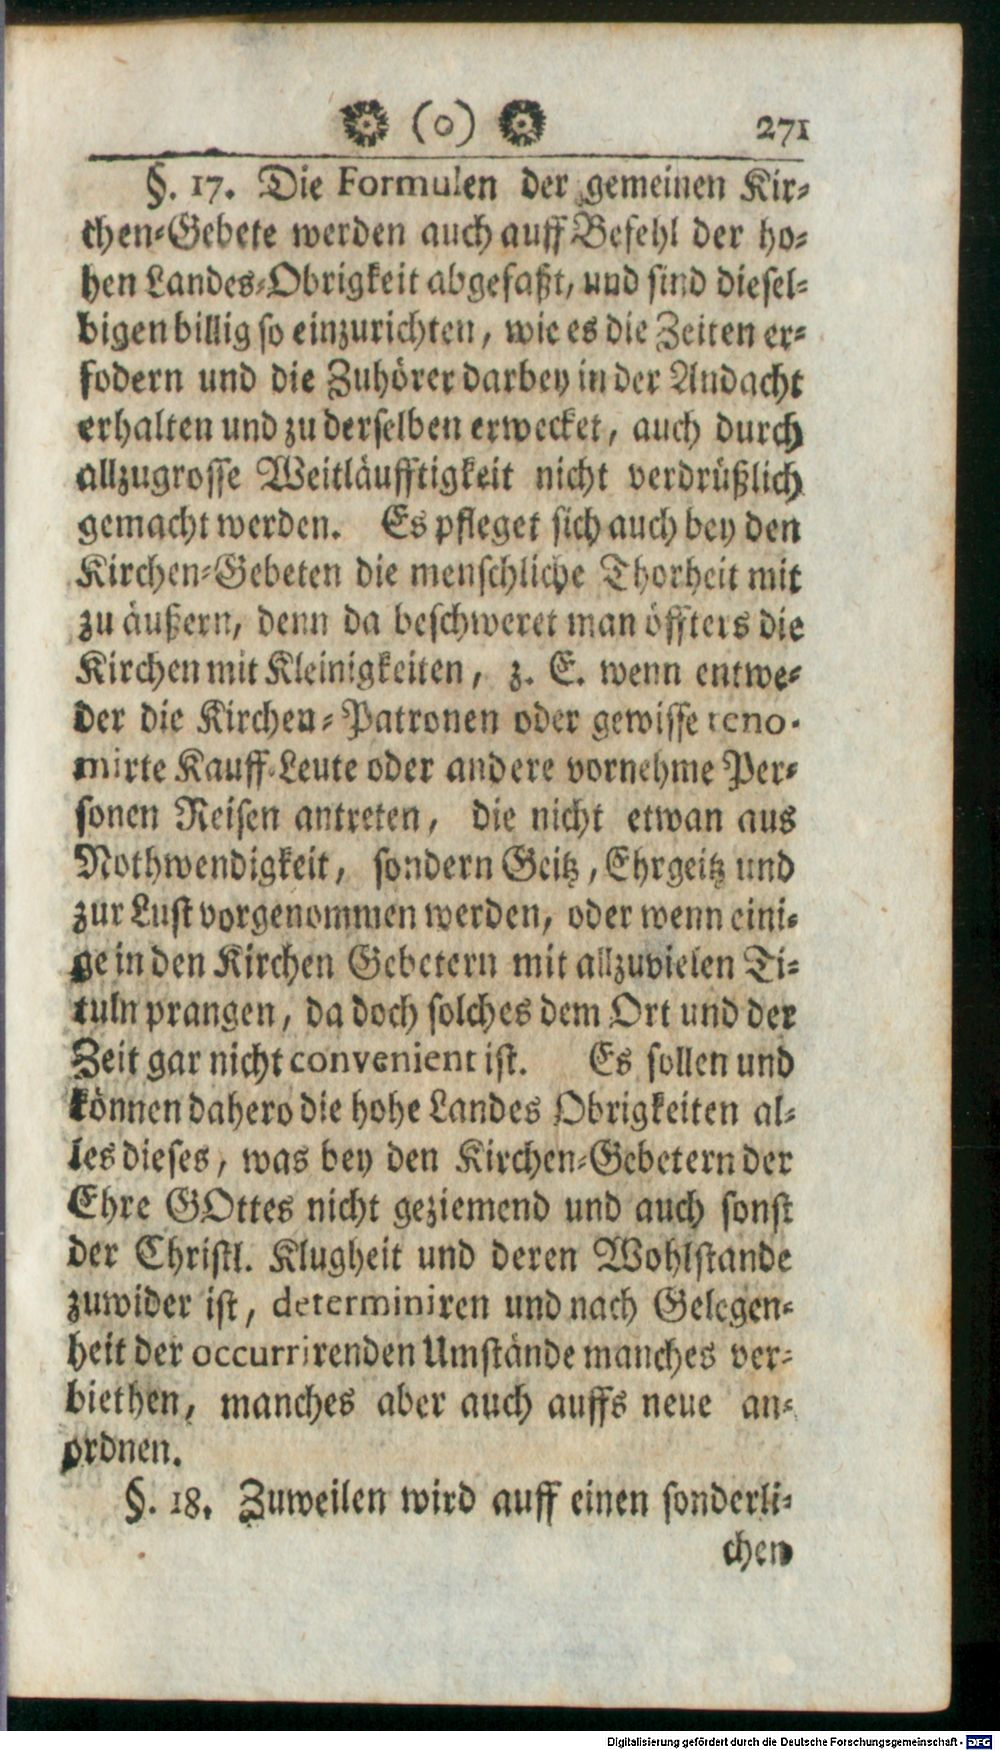 (o) 271
§. 17. Die Formulen der gemeinen Kir-
chen-Gebete werden auch auff Befehl der ho-
hen Landes-Obrigkeit abgefaßt, und sind diesel-
bigen billig so einzurichten, wie es die Zeiten er-
fodern und die Zuhörer darbey in der Andacht
erhalten und zu derselben erwecket, auch durch
allzugrosse Weitläufftigkeit nicht verdrüßlich
gemacht werden. Es pfleget sich auch bey den
Kirchen-Gebeten die menschliche Thorheit mit
zu äußern, denn da beschweret man öffters die
Kirchen mit Kleinigkeiten, z. E. wenn entwe-
der die Kirchen-Patronen oder gewisse reno-
mirte Kauff-Leute oder andere vornehme Per-
sonen Reisen antreten, die nicht etwan aus
Nothwendigkeit, sondern Geitz, Ehrgeitz und
zur Lust vorgenommen werden, oder wenn eini-
ge in den Kirchen Gebetern mit allzuvielen Ti-
tuln prangen, da doch solches dem Ort und der
Zeit gar nicht convenient ist. Es sollen und
können dahero die hohe Landes Obrigkeiten al-
les dieses, was bey den Kirchen-Gebetern der
Ehre GOttes nicht geziemend und auch sonst
der Christl. Klugheit und deren Wohlstande
zuwider ist, determiniren und nach Gelegen-
heit der occurrirenden Umstände manches ver-
biethen, manches aber auch auffs neue an-
ordnen.
§. 18. Zuweilen wird auff einen sonderli-
chen
Digitalisierung gefördert durch die Deutsche Forschungsgemeinschaft - DFG